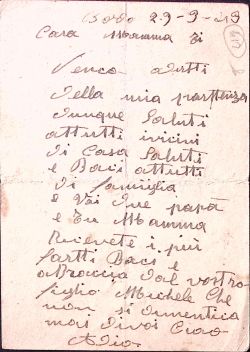 Bordo 29-9-43
Cara Mamma ti
Vengo a dirtti
della mia parttenza
dunque Saluti
attutti ivicini
di Casa Saluti
e Baci attutti
di famiglia
e Voi due papà
e tu Mamma
Ricevete i più
fartti Baci e
abbraccia dal vostro
figlio Michele Che
non si dimentica
mai divoi Ciao
Adio